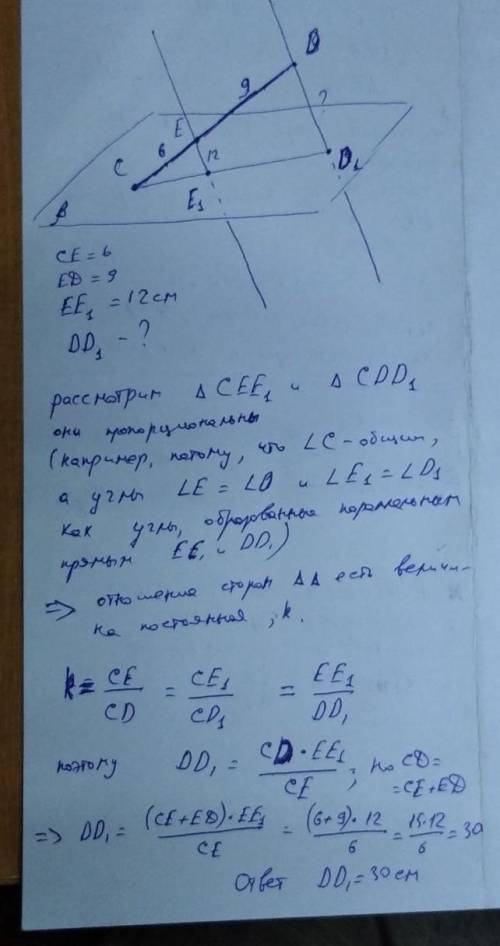 D
9
?
E
6
12
C
D₁
E₁
β
CE = 6
ED = 9
EE₁ = 12 см
DD₁ - ?
рассмотрим △ CEE₁ и △ CDD₁
они пропорциональны
(например, потому, что ∠C - общий,
а углы ∠E = ∠D и ∠E₁ = ∠D₁
как углы, образованные параллельным
прямым EE₁ и DD₁)
=> отношение сторон △△ есть величи-
на постоянная, k.
k = CE/CD = CE₁/CD₁ = EE₁/DD₁
поэтому DD₁ = CD · EE₁/CE ; но CD =
= CE + ED
=> DD₁ = (CE + ED) · EE₁/CE = (6+9) · 12/6 = 15·12/6 = 30
Ответ DD₁ = 30 см